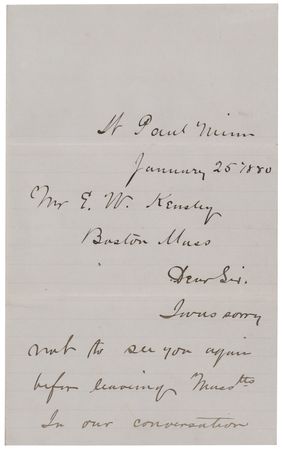 St Paul Minn
January 25 1880
Mr E. W. Kensley
Boston Mass
Dear Sir.
I was sorry
not to see you again
before leaving Masstts
In our conversation